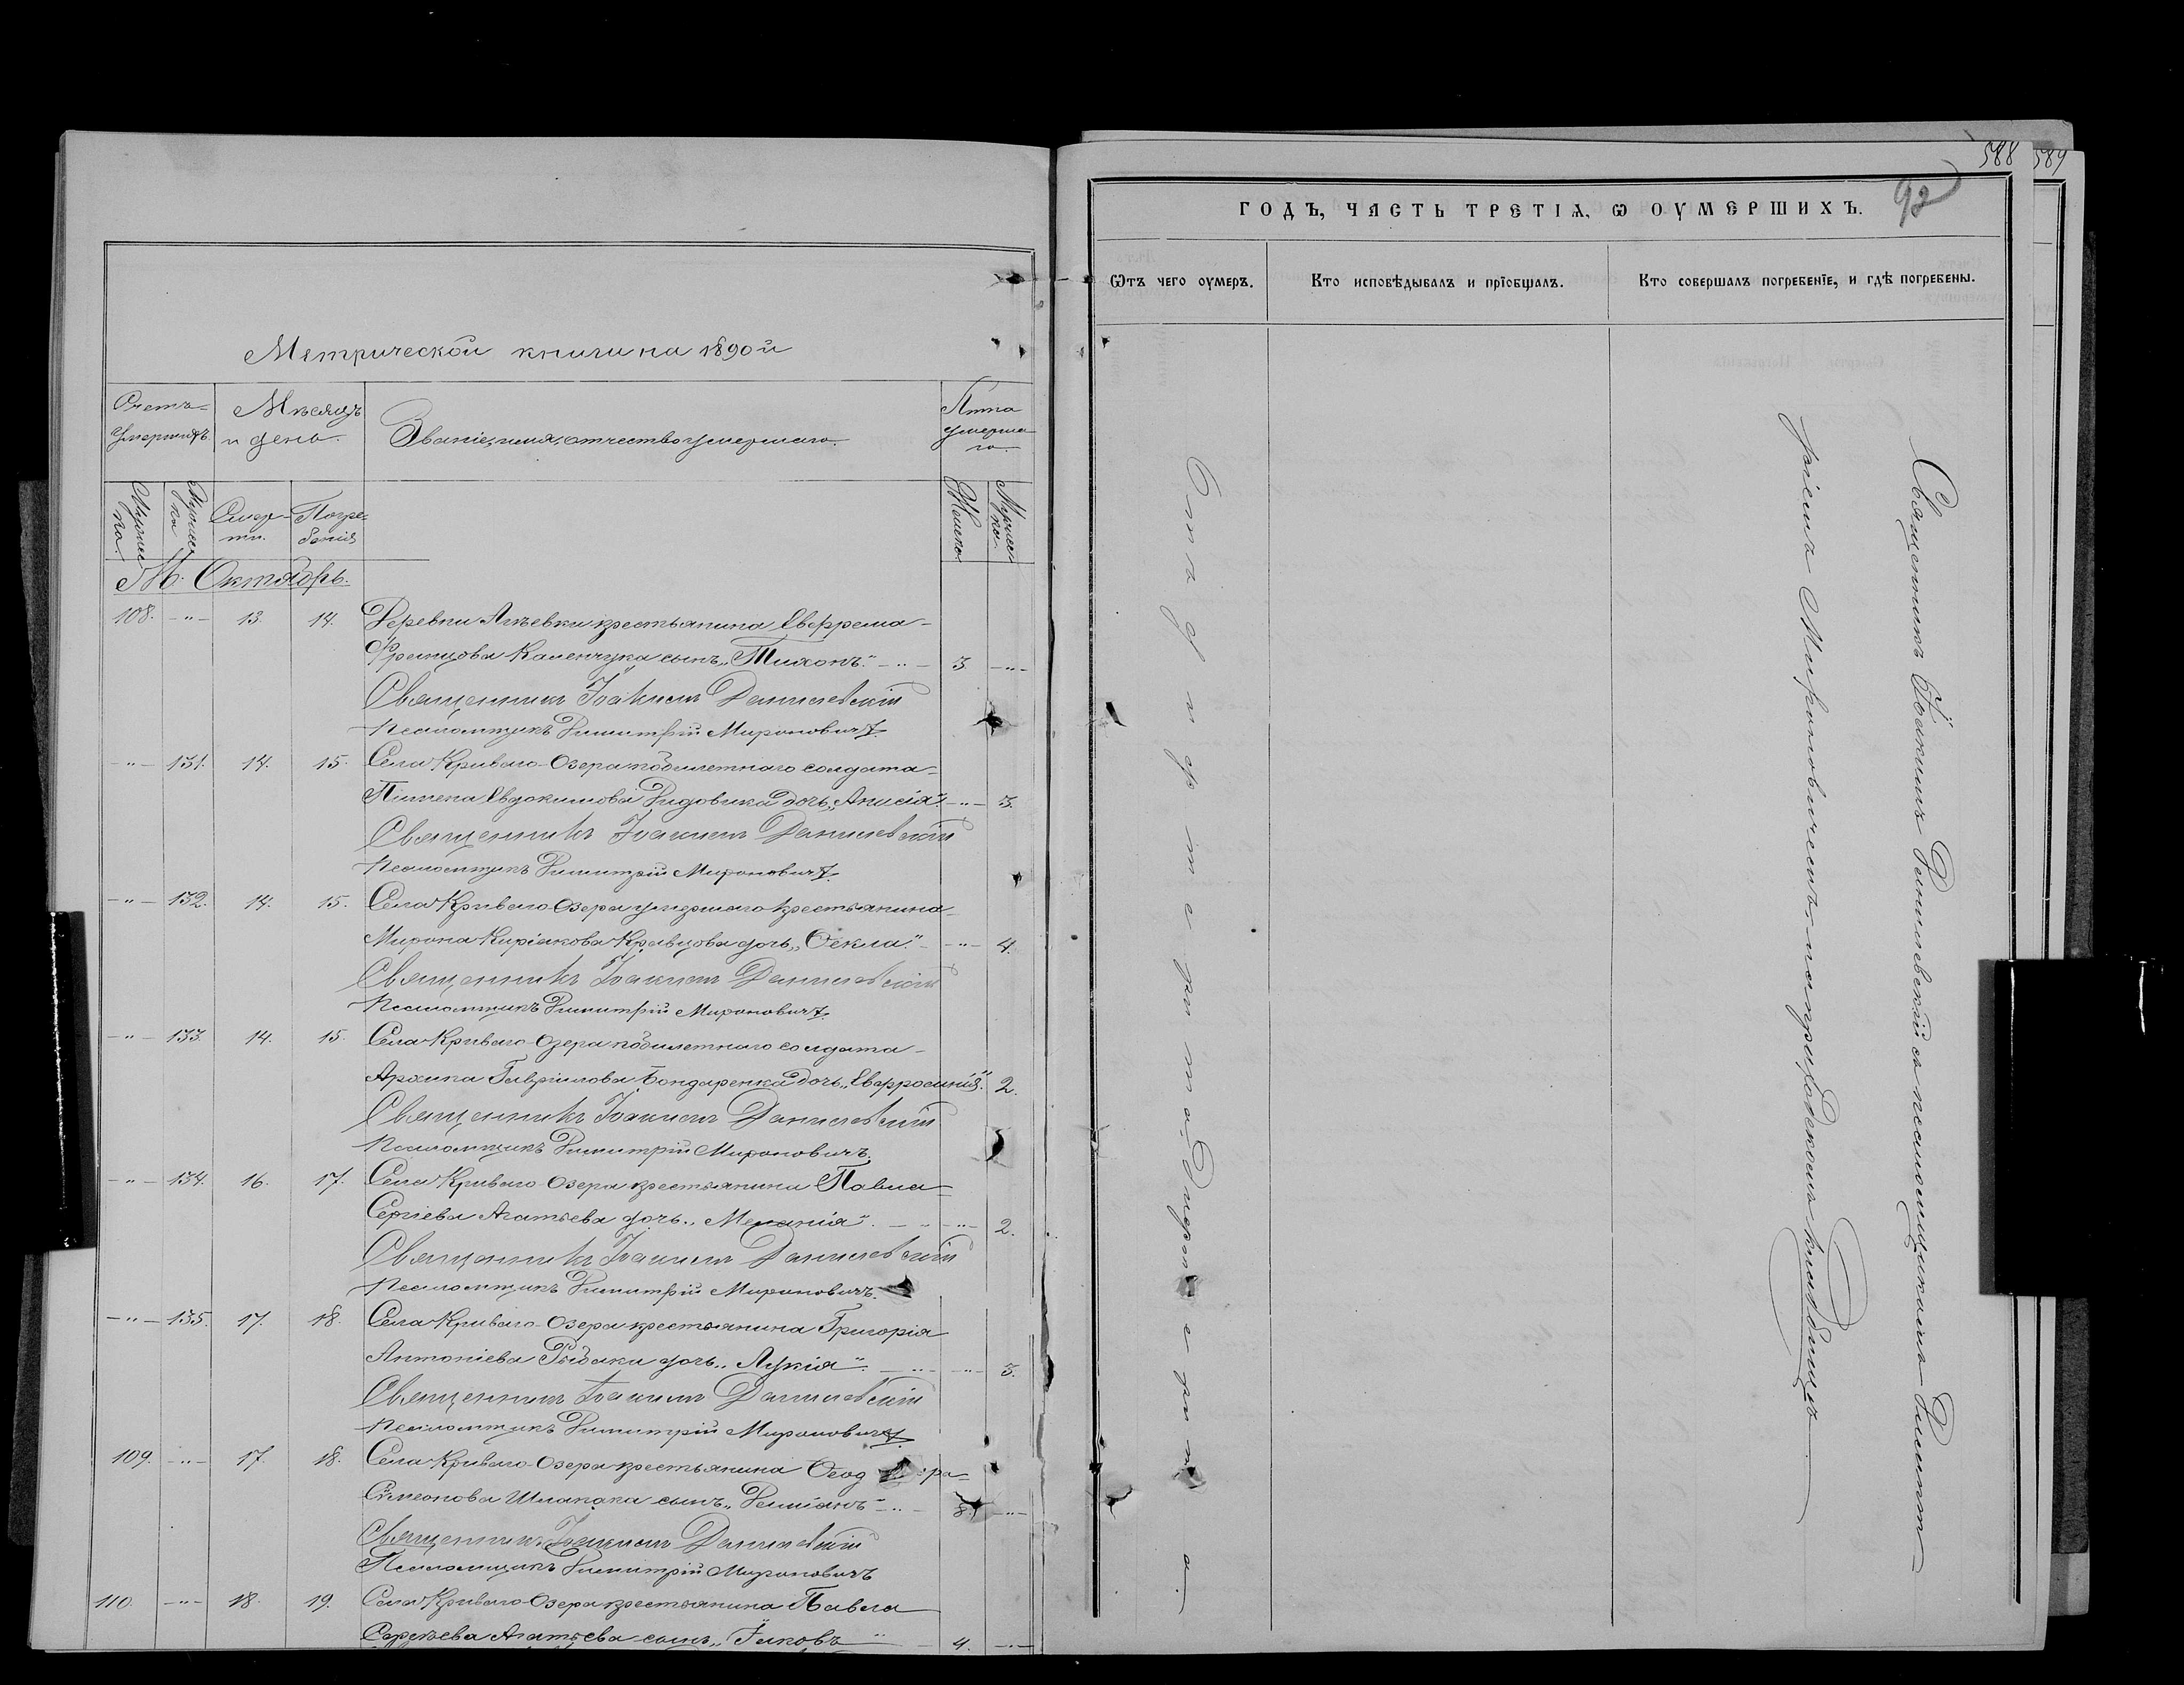 Метрической книги на 1890й
Счетъ умершихъ.
Мѣсяцъ и день.
Званіе, имя, отчество умершаго.
Лѣта умершаго.
Мужеска.
Женска
Смерти.
Погребенія
М. Октябрь.
108. -"- 13. 14. Деревни Ляевки крестьянина Еврема
Каменчука сынъ „Тихонъ." -"- 3. -"-
Священникъ Іоакимъ Данилевскій
Псаломщикъ Димитрій Мироновичъ.
-"- 131. 14. 15. Села Криваго-Озера побилетнаго солдата
Пимена Евдокимова Дидовика дочь „Анисія". -"- 3.
Священникъ Іоакимъ Данилевскій
Псаломщикъ Димитрій Мироновичъ.
-"- 132. 14. 15. Села Криваго-Озера умершаго крестьянина
Мирона Киріакова Кравцова дочь „Ѳекла." -"- 4.
Священникъ Іоакимъ Данилевскій
Псаломщикъ Димитрій Мироновичъ.
-"- 133. 14. 15. Села Криваго-Озера побилетнаго солдата
Архипа Гавріилова Бондаренка дочь „Евфросинія". 2.
Священникъ Іоакимъ Данилевскій
Псаломщикъ Димитрій Мироновичъ.
-"- 134. 16. 17. Села Криваго-Озера крестьянина Павла
Сергіева Агатьева дочь „Меланія". -"- -"- 2.
Священникъ Іоакимъ Данилевскій
Псаломщикъ Димитрій Мироновичъ.
-"- 135. 17. 18. Села Криваго-Озера крестьянина Григорія
Антоніева Рыбака дочь „Лукія". -"- -"- 3.
Священникъ Іоакимъ Данилевскій
Псаломщикъ Димитрій Мироновичъ.
109. -"- 17. 18. Села Криваго-Озера крестьянина Ѳеодора
Симеонова Шпака сынъ „Деміанъ" -"- 8. -"-
Священникъ Іоакимъ Данилевскій
Псаломщикъ Димитрій Мироновичъ
110. -"- 18. 19. Села Криваго-Озера крестьянина Павла
Сергѣева Агатьева сынъ „Іаковъ" 4. -"-
588
589
92
ГОДЪ, ЧАСТЬ ТРЕТІѦ, Ѡ ОУМЕРШИХЪ.
Ѿтъ чего оумеръ.
Кто исповѣдывалъ и прїобщалъ.
Кто совершалъ погребенїе, и гдѣ погребены.
Отъ дифтерита.
Священникъ Іоакимъ Данилевскій съ псаломщикомъ Димит
ріемъ Мироновичемъ на приходскомъ кладбищѣ